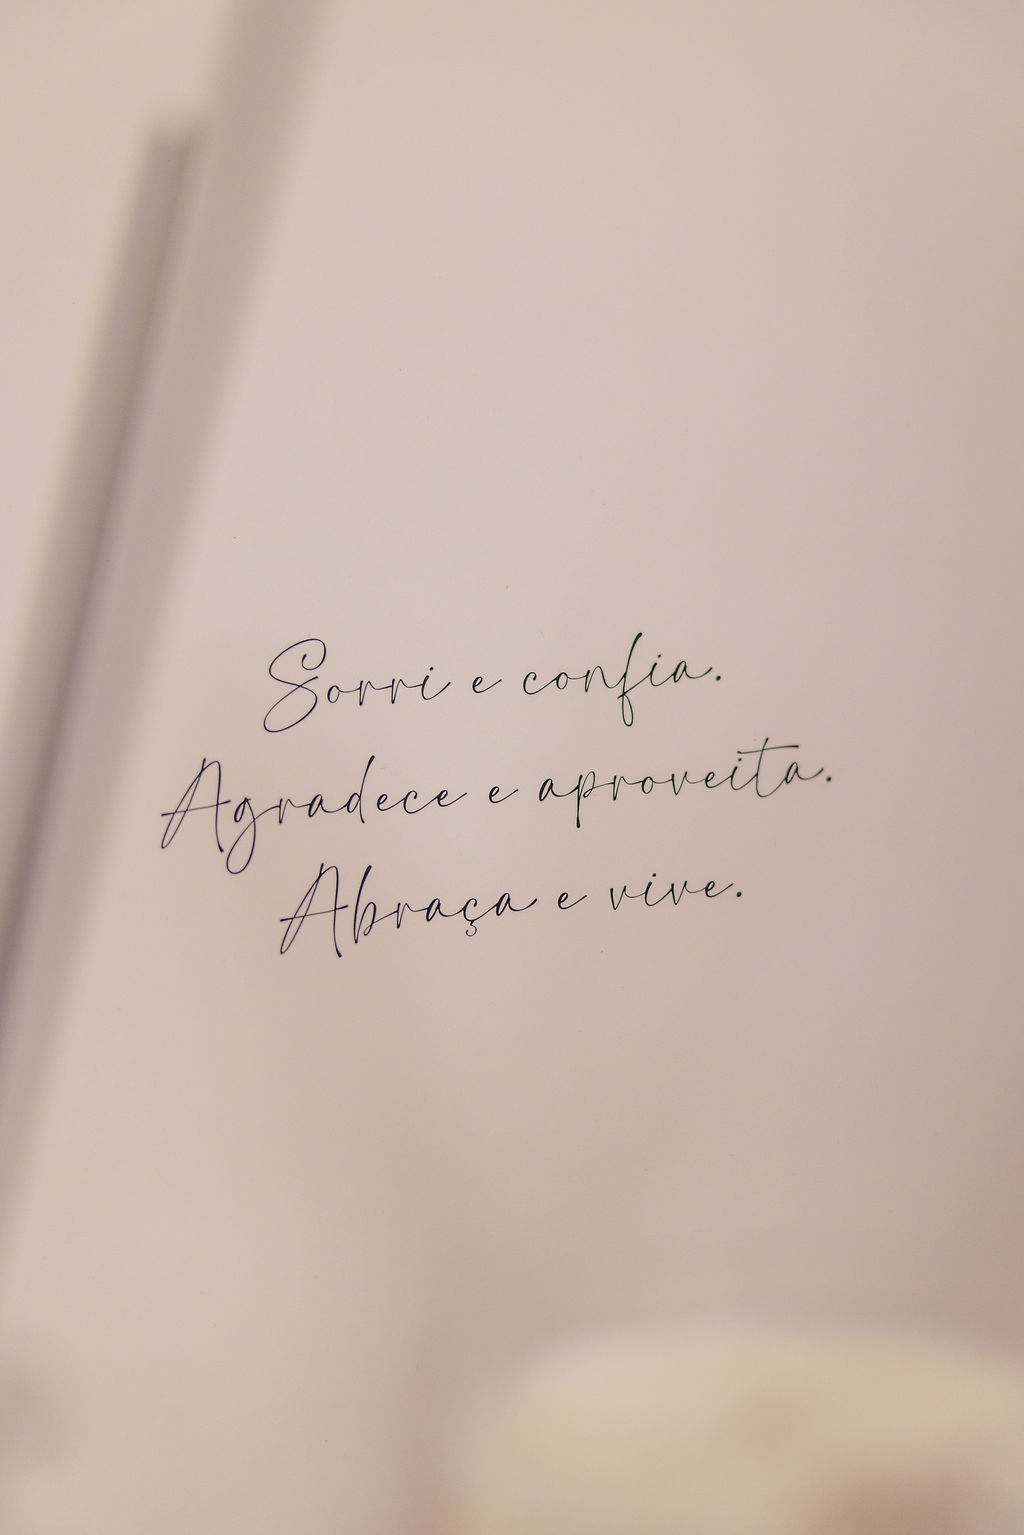 Sorri e confia.
Agradece e aproveita.
Abraça e vive.